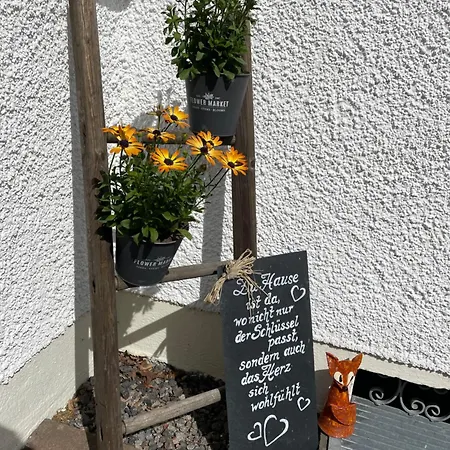 FLOWER MARKET
FLOWER MARKET
Zu Hause
ist da,
wo nicht nur
der Schlüssel
passt,
sondern auch
das Herz
sich
wohlfühlt